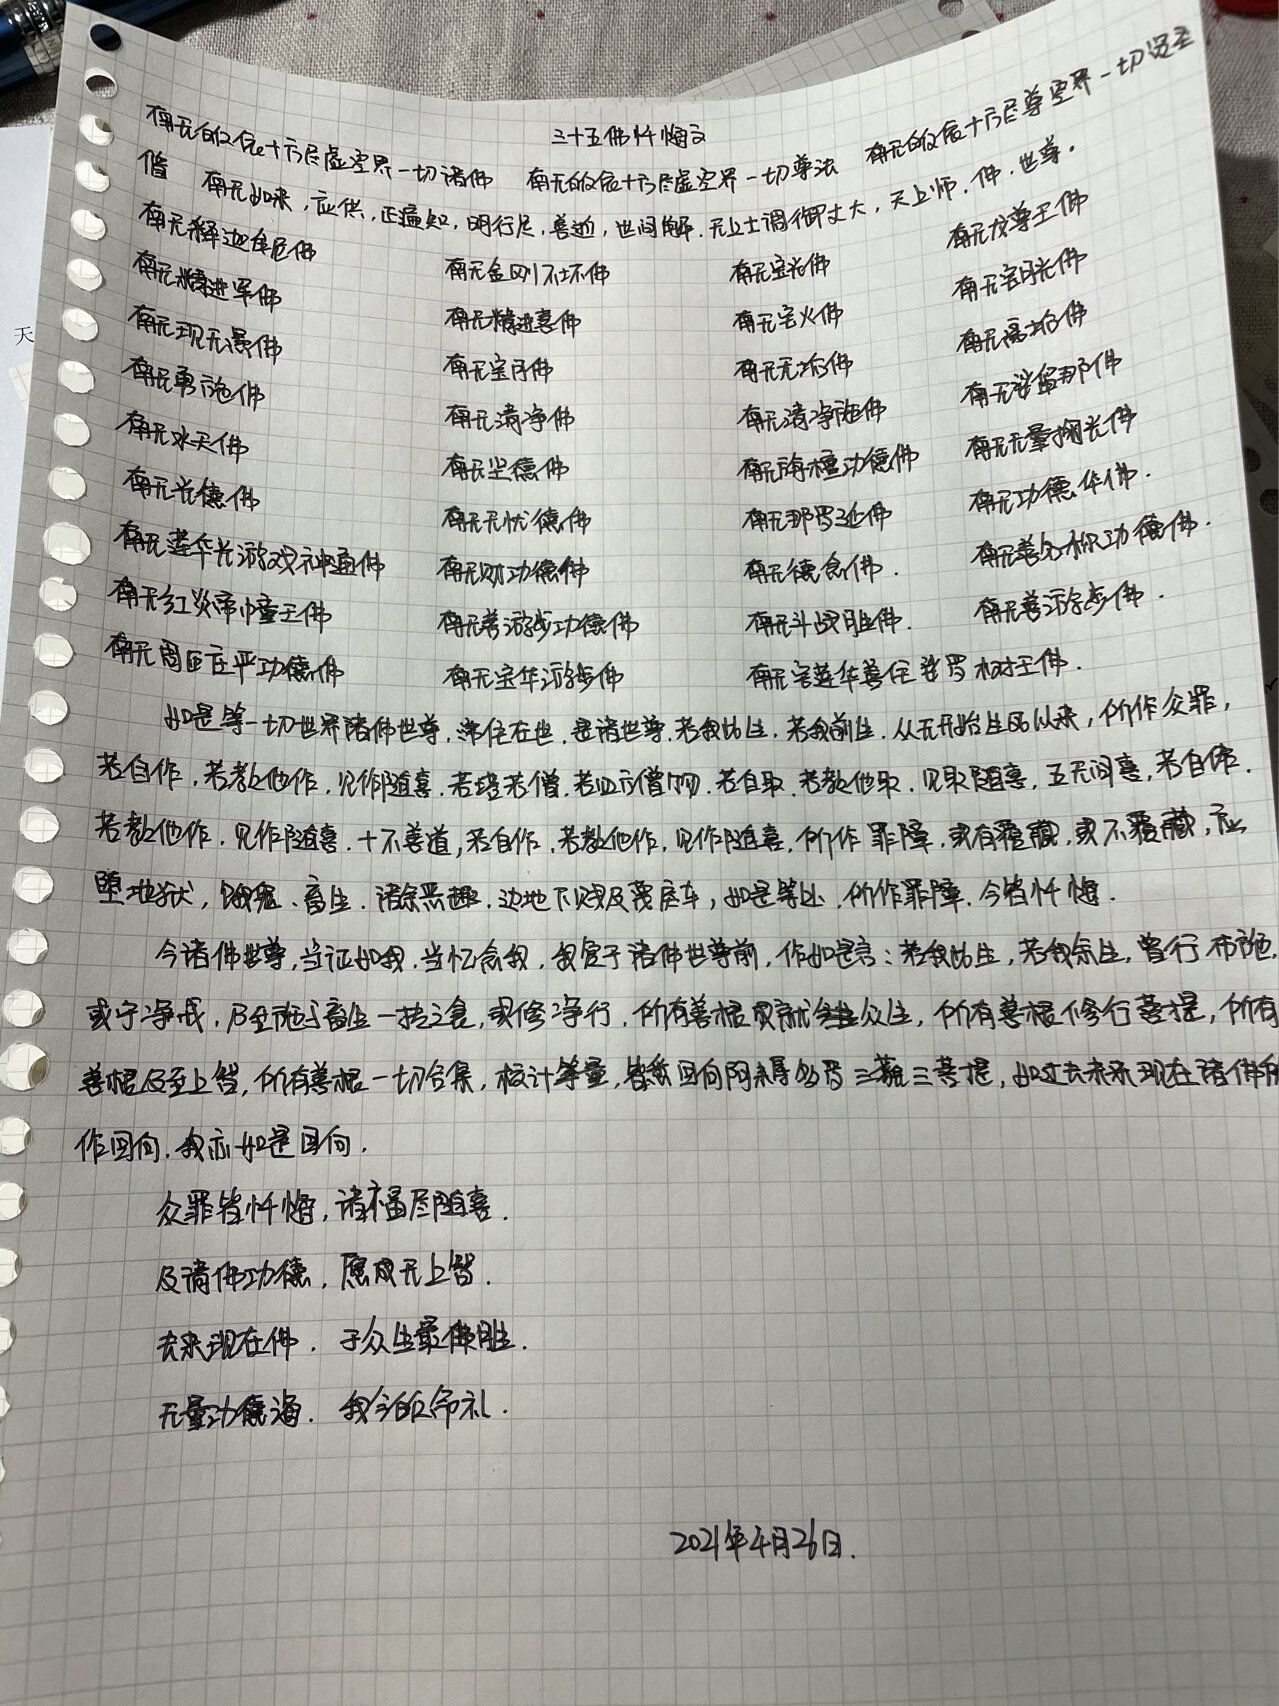 三十五佛忏悔文
南无皈依十方尽虚空界一切诸佛 南无皈依十方尽虚空界一切尊法 南无皈依十方尽尊空界一切贤圣
僧 南无如来，应供，正遍知，明行足，善逝，世间解，无上士调御丈夫，天上师，佛，世尊。
南无释迦牟尼佛 南无金刚不坏佛 南无宝光佛 南无龙尊王佛
南无精进军佛 南无精进喜佛 南无宝火佛 南无宝月光佛
南无现无愚佛 南无宝月佛 南无无垢佛 南无离垢佛
南无勇施佛 南无清净佛 南无清净施佛 南无娑留那佛
南无水天佛 南无坚德佛 南无旃檀功德佛 南无无量掬光佛
南无光德佛 南无无忧德佛 南无那罗延佛 南无功德华佛.
南无莲华光游戏神通佛 南无财功德佛 南无德念佛. 南无善名称功德佛.
南无红炎帝幢王佛 南无善游步功德佛 南无斗战胜佛. 南无善游步佛.
南无周匝庄严功德佛 南无宝华游步佛 南无宝莲华善住娑罗树王佛.
如是等一切世界诸佛世尊，常住在世，是诸世尊，若我此生，若我前生，从无始生死以来，所作众罪，
若自作，若教他作，见作随喜，若塔若僧，若四方僧物，若自取，若教他取，见取随喜，五无间，若自作，
若教他作，见作随喜，十不善道，若自作，若教他作，见作随喜，所作罪障，或有覆藏，或不覆藏，应
堕地狱，饿鬼、畜生，诸余恶趣，边地下贱及蔑戾车，如是等处，所作罪障，今皆忏悔.
今诸佛世尊，当证知我，当忆念我，我复于诸佛世尊前，作如是言：若我此生，若我余生，曾行布施，
或守净戒，乃至施于畜生一抟之食，或修净行，所有善根成就众生，所有善根修行菩提，所有
善根及至上智，所有善根一切合集，校计筹量，皆悉回向阿耨多罗三藐三菩提，如过去未来现在诸佛所
作回向，我亦如是回向.
众罪皆忏悔，诸福尽随喜.
及请佛功德，愿成无上智.
去来现在佛. 于众生最胜.
无量功德海. 我今皈命礼.
2021年4月26日.